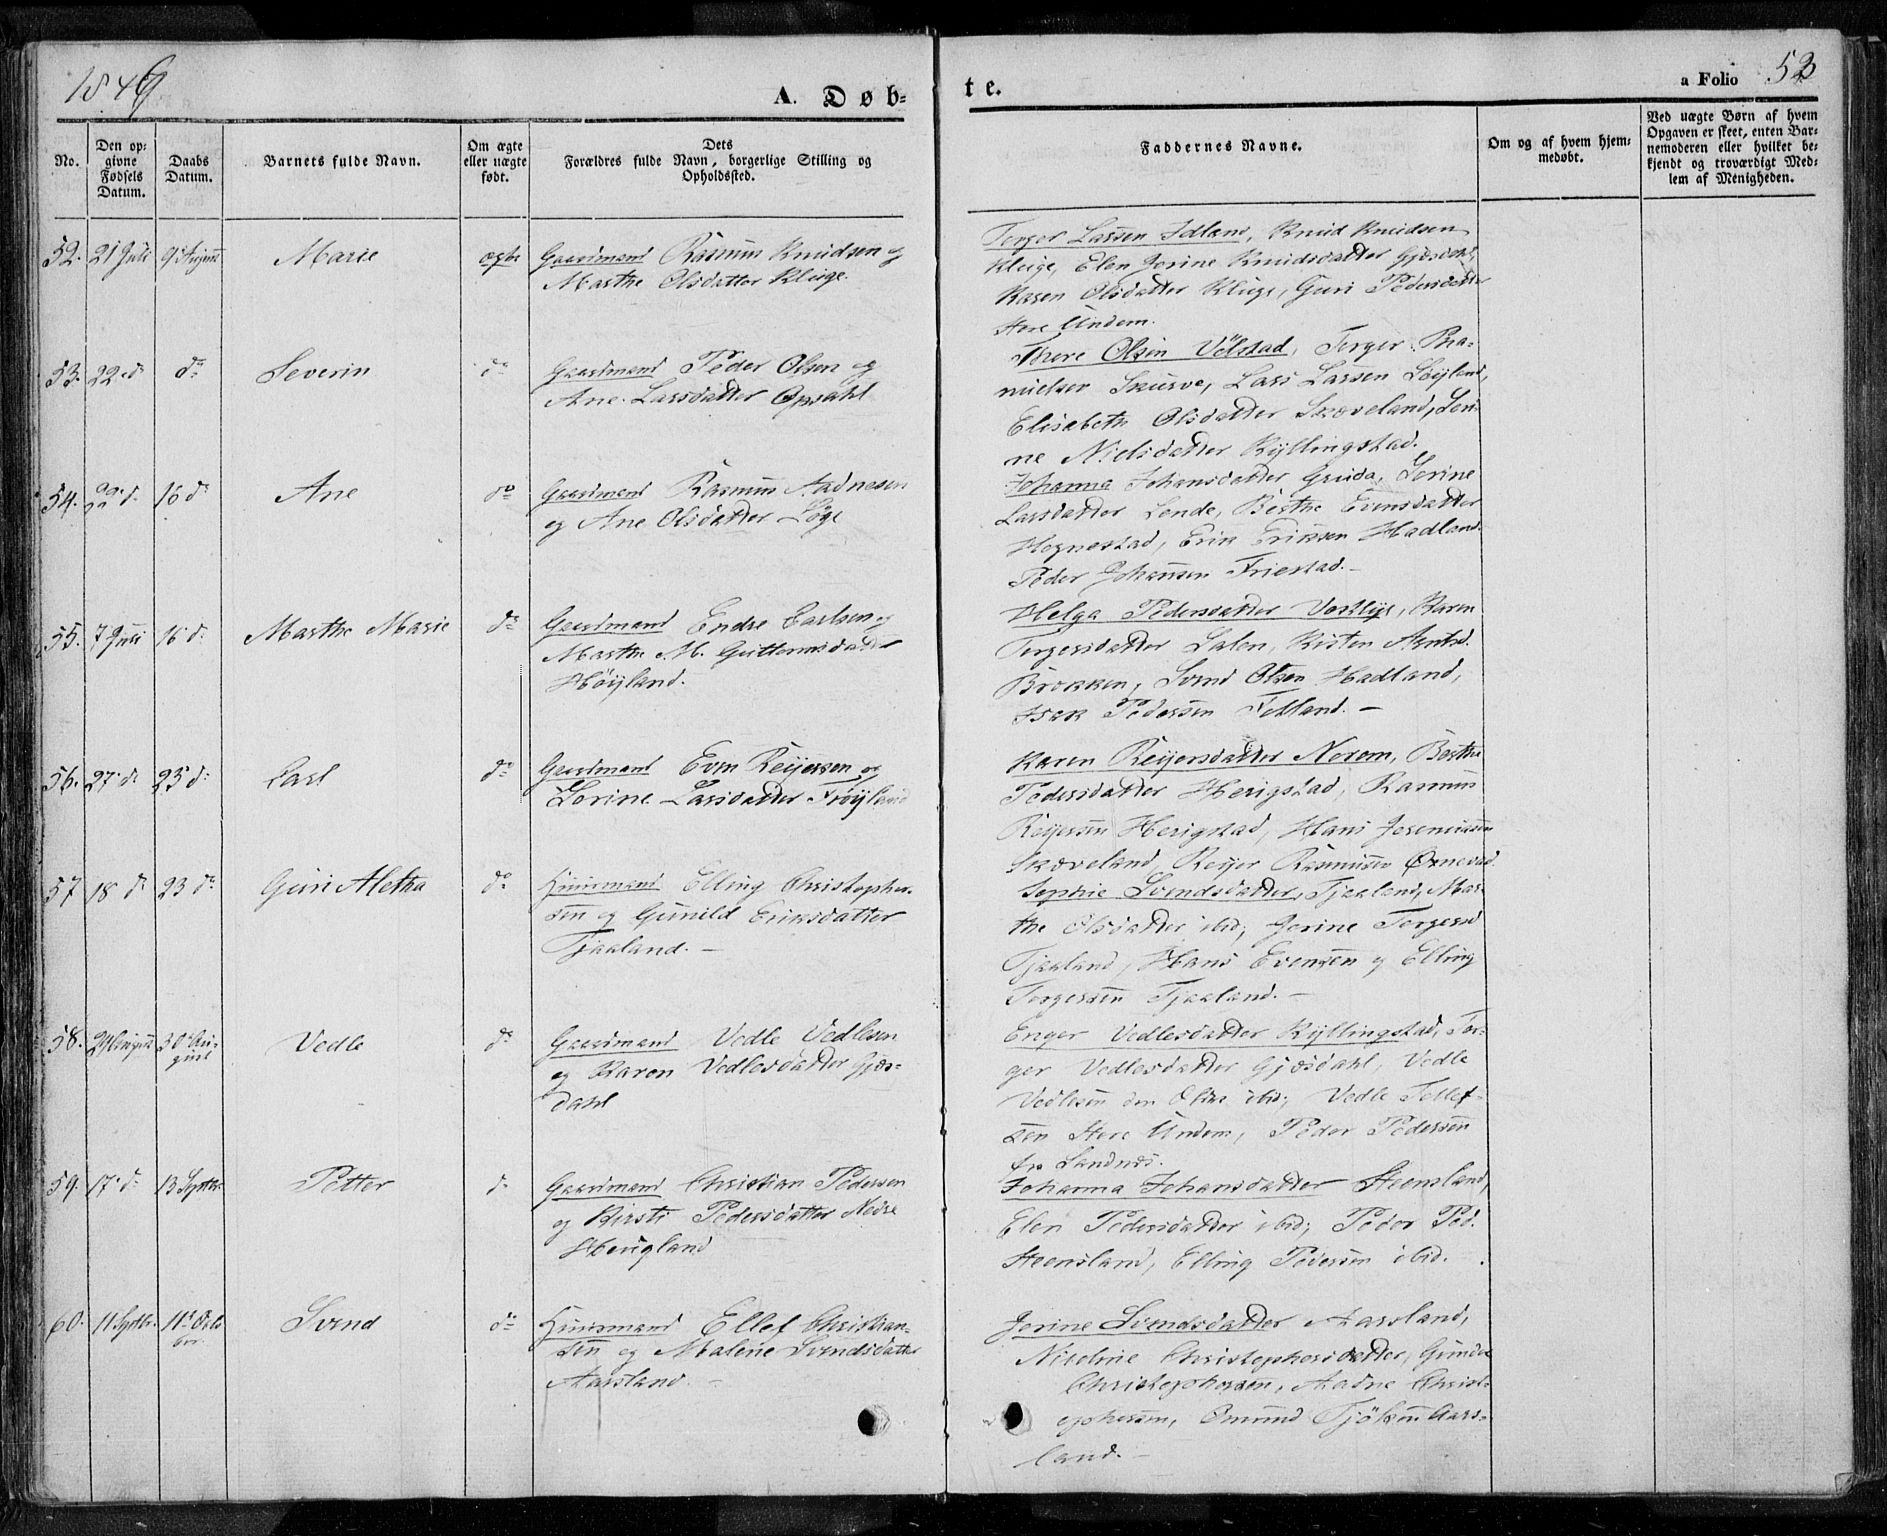 1846
A. Døb=
te.
a Folio 52
No.
Den op=
givne
Fødsels
Datum.
Daabs
Datum.
Barnets fulde Navn.
Om ægte
eller uægte
født.
Dets
Forældres fulde Navn, borgerlige Stilling og
Opholdssted.
Faddernes Navne.
Om og af hvem hjem=
medøbt.
Ved uægte Børn af hvem
Opgaven er skeet, enten Bar=
nemoderen eller hvilket be=
kjendt og troværdigt Med=
lem af Menigheden.
52. 21 Juli 9 August Marie ægte Gaardmand Rasmus Knudsen og
Marthe Olsdatter Kluge.
Torger Larssen Idland, Knud Knudsen
Kluge, Elen Jorine Knudsdatter Gjæsdahl,
Karen Olsdatter Kluge, Guri Pedersdatter
Store Undem.
53. 22 d: do Severin do Gaardmand Peder Olsen og
Ane Larsdatter Opsahl
Thore Olsen Vølstad, Torger
Skurve, Lars Larsen Søyland,
Elisabeth Olsdatter Skoveland, Seri-
ne Nielsdatter Kyllingstad.
54. 22 d: 16 d: Ane do Gaardmand Rasmus Aadnesen
og Ane Olsdatter Løge
Johanna Johansdatter Gruda, Serine
Larsdatter Lende, Berthe Evensdatter
Hognestad, Erik Eriksen Hadland
Peder Johansen Friestad. -
55. 7 Juli 16 d: Marthe Marie do Gaardmand Endre Carlsen og
Marthe M. Guttormsdatter
Høyland.
Helga Pedersdatter Vestlye, Karen
Torgersdatter Lalen, Kisten
Brekken, Svend Olsen Hadland,
Isak Pedersen Fotland. -
56. 27 d: 23 d: Carl do Gaardmand Even Reijersen og
Serine Larsdatter Frøyland
Karen Reijersdatter Norem, Berthe
Pedersdatter Herigstad, Rasmus
Reijersen Herigstad, Hans Jeremiassen
Skoveland, Reijer Rasmussen Ørnevad
57 18 d: 23 do Guri Aletha do Huusmand Elling Christopher-
sen og Gunild Eriksdatter
Tjaaland. -
Sophie Svendsdatter, Tjaaland, Mar-
the Olsdatter ibid; Jorine Torgersd
Tjaaland, Hans Evensen og Elling
Torgersen Tjaaland. -
58. August 30 Au-
gust Vedle do Gaardmand Vedle Vedlesen
og Karen Vedlesdatter Gjæs-
dahl
Enger Vedlesdatter Kyllingstad, Tor-
ger Vedlesdatter Gjæsdahl, Vedle
Vedlesen den Ældre ibid; Vedle Tollef-
sen Store Undem, Peder Pedersen
fra Sandnæs.
59. 17 d: 13 Septbr Petter do Gaardmand Christian Pedersen
og Kirsti Pedersdatter Nedre
Haugland
Johanna Johansdatter Steensland,
Elen Pedersdatter ibid; Peder Ped.
Steensland, Elling Pedersen ibid.
60. 11 Septbr. 11 Octo
ber Svend do Huusmand Ellef Christian-
sen og Malene Svendsdatter
Aarsland. -
Jorine Svendsdatter Aarsland,
Nicoline Christophersdatter,
Christophersen, Aadne Christ-
ophersen, Omund Aars-
land. -